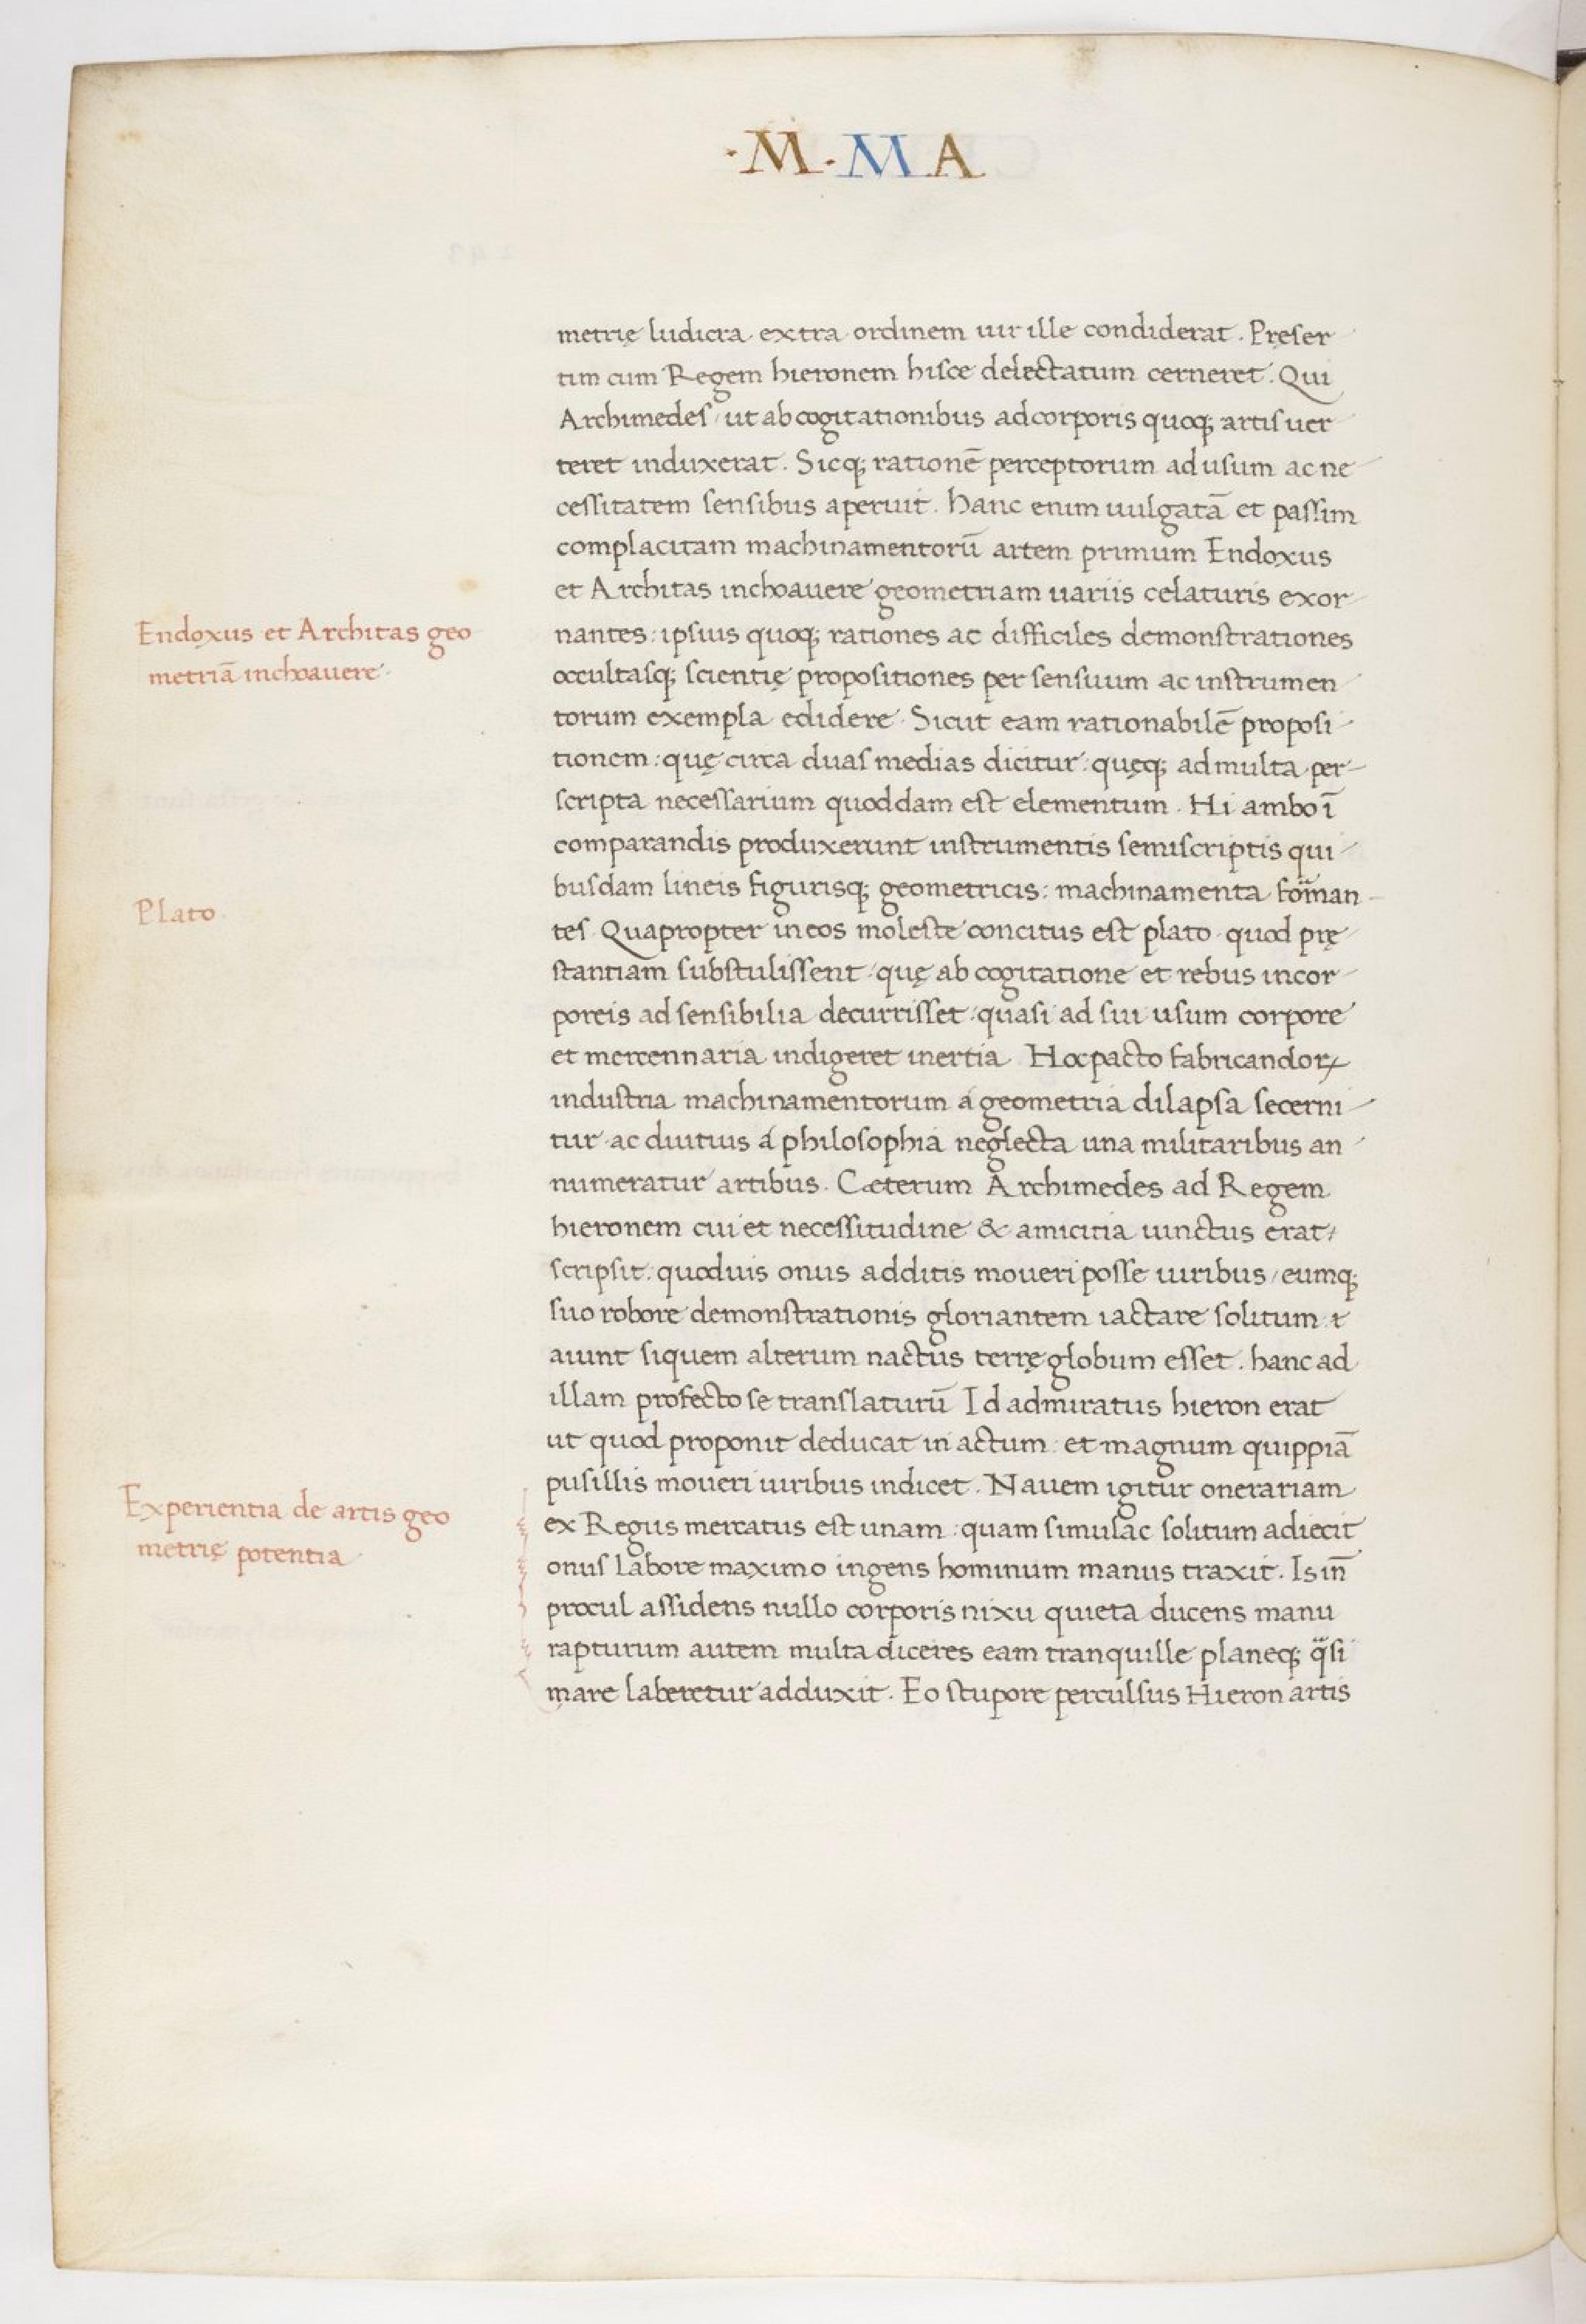 ·M·MA
metrię ludicra extra ordinem uir ille condiderat. Pręser
tim cum Regem hieronem hisce delectatum cerneret. Qui
Archimedes ut ab cogitationibus ad corporis quoq; artis uer
teret induxerat. Sicq; rationē perceptorum ad usum ac ne
cessitatem sensibus aperuit. hanc enim uulgatā et passim
complacitam machinamentorū artem primum Endoxus
et Architas inchoauere geometriam uariis celaturis exor
Endoxus et Architas geo
metriā inchoauere.
nantes: ipsius quoq; rationes ac difficiles demonstrationes
occultasq; scientię propositiones per sensuum ac instrumen
torum exempla edidere. Sicut eam rationabilē proposi
tionem: quę circa duas medias dicitur: quęq; ad multa per
scripta necessarium quoddam est elementum. Hi ambo ī
comparandis produxerunt instrumentis semiscriptis qui
busdam lineis figurisq; geometricis: machinamenta forman
Plato.
tes. Quapropter in eos moleste concitus est plato. quod prę
stantiam substulissent: quę ab cogitatione et rebus incor
poreis ad sensibilia decurrisset: quasi ad sui usum corpore
et mercennaria indigeret inertia. Hoc pacto fabricandoꝝ
industria machinamentorum á geometria dilapsa secerni
tur. ac diutius á philosophia neglecta una militaribus an
numeratur artibus. Cæterum Archimedes ad Regem
hieronem cui et necessitudine & amicitia uinctus erat,
scripsit: quoduis onus additis moueri posse uiribus, eumq;
suo robore demonstrationis gloriantem iactare solitum
aiunt siquem alterum nactus terrę globum esset. hanc ad
illam profecto se translaturū Id admiratus hieron erat
ut quod proponit deducat in actum: et magnum quippiā
pusillis moueri uiribus indicet. Nauem igitur onerariam
Experientia de artis geo
metrię potentia
ex Regiis mercatus est unam: quam simulac solitum adiecit
onus labore maximo ingens hominum manus traxit. Is in̄
procul assidens nullo corporis nixu quieta ducens manu
rapturum autem multa diceres eam tranquille planeq; q̈si
mare laberetur adduxit. Eo stupore perculsus Hieron artis